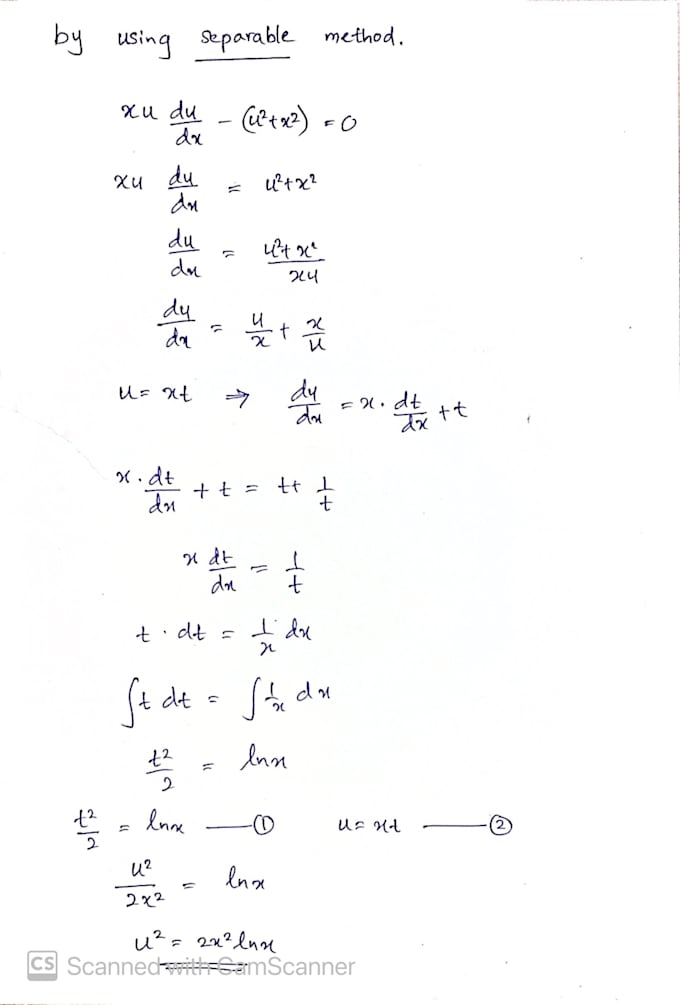 by using separable method.
xu du/dx - (u²+x²) = 0
xu du/dx = u²+x²
du/dx = u²+x²/xu
du/dx = u/x + x/u
u = xt ⇒ du/dx = x. dt/dx + t
x. dt/dx + t = t+ 1/t
x dt/dx = 1/t
t · dt = 1/x dx
∫t dt = ∫1/x dx
t²/2 = lnx
t²/2 = lnx —① u = xt —②
u²/2x² = lnx
u² = 2x²lnx
CS Scanned with CamScanner